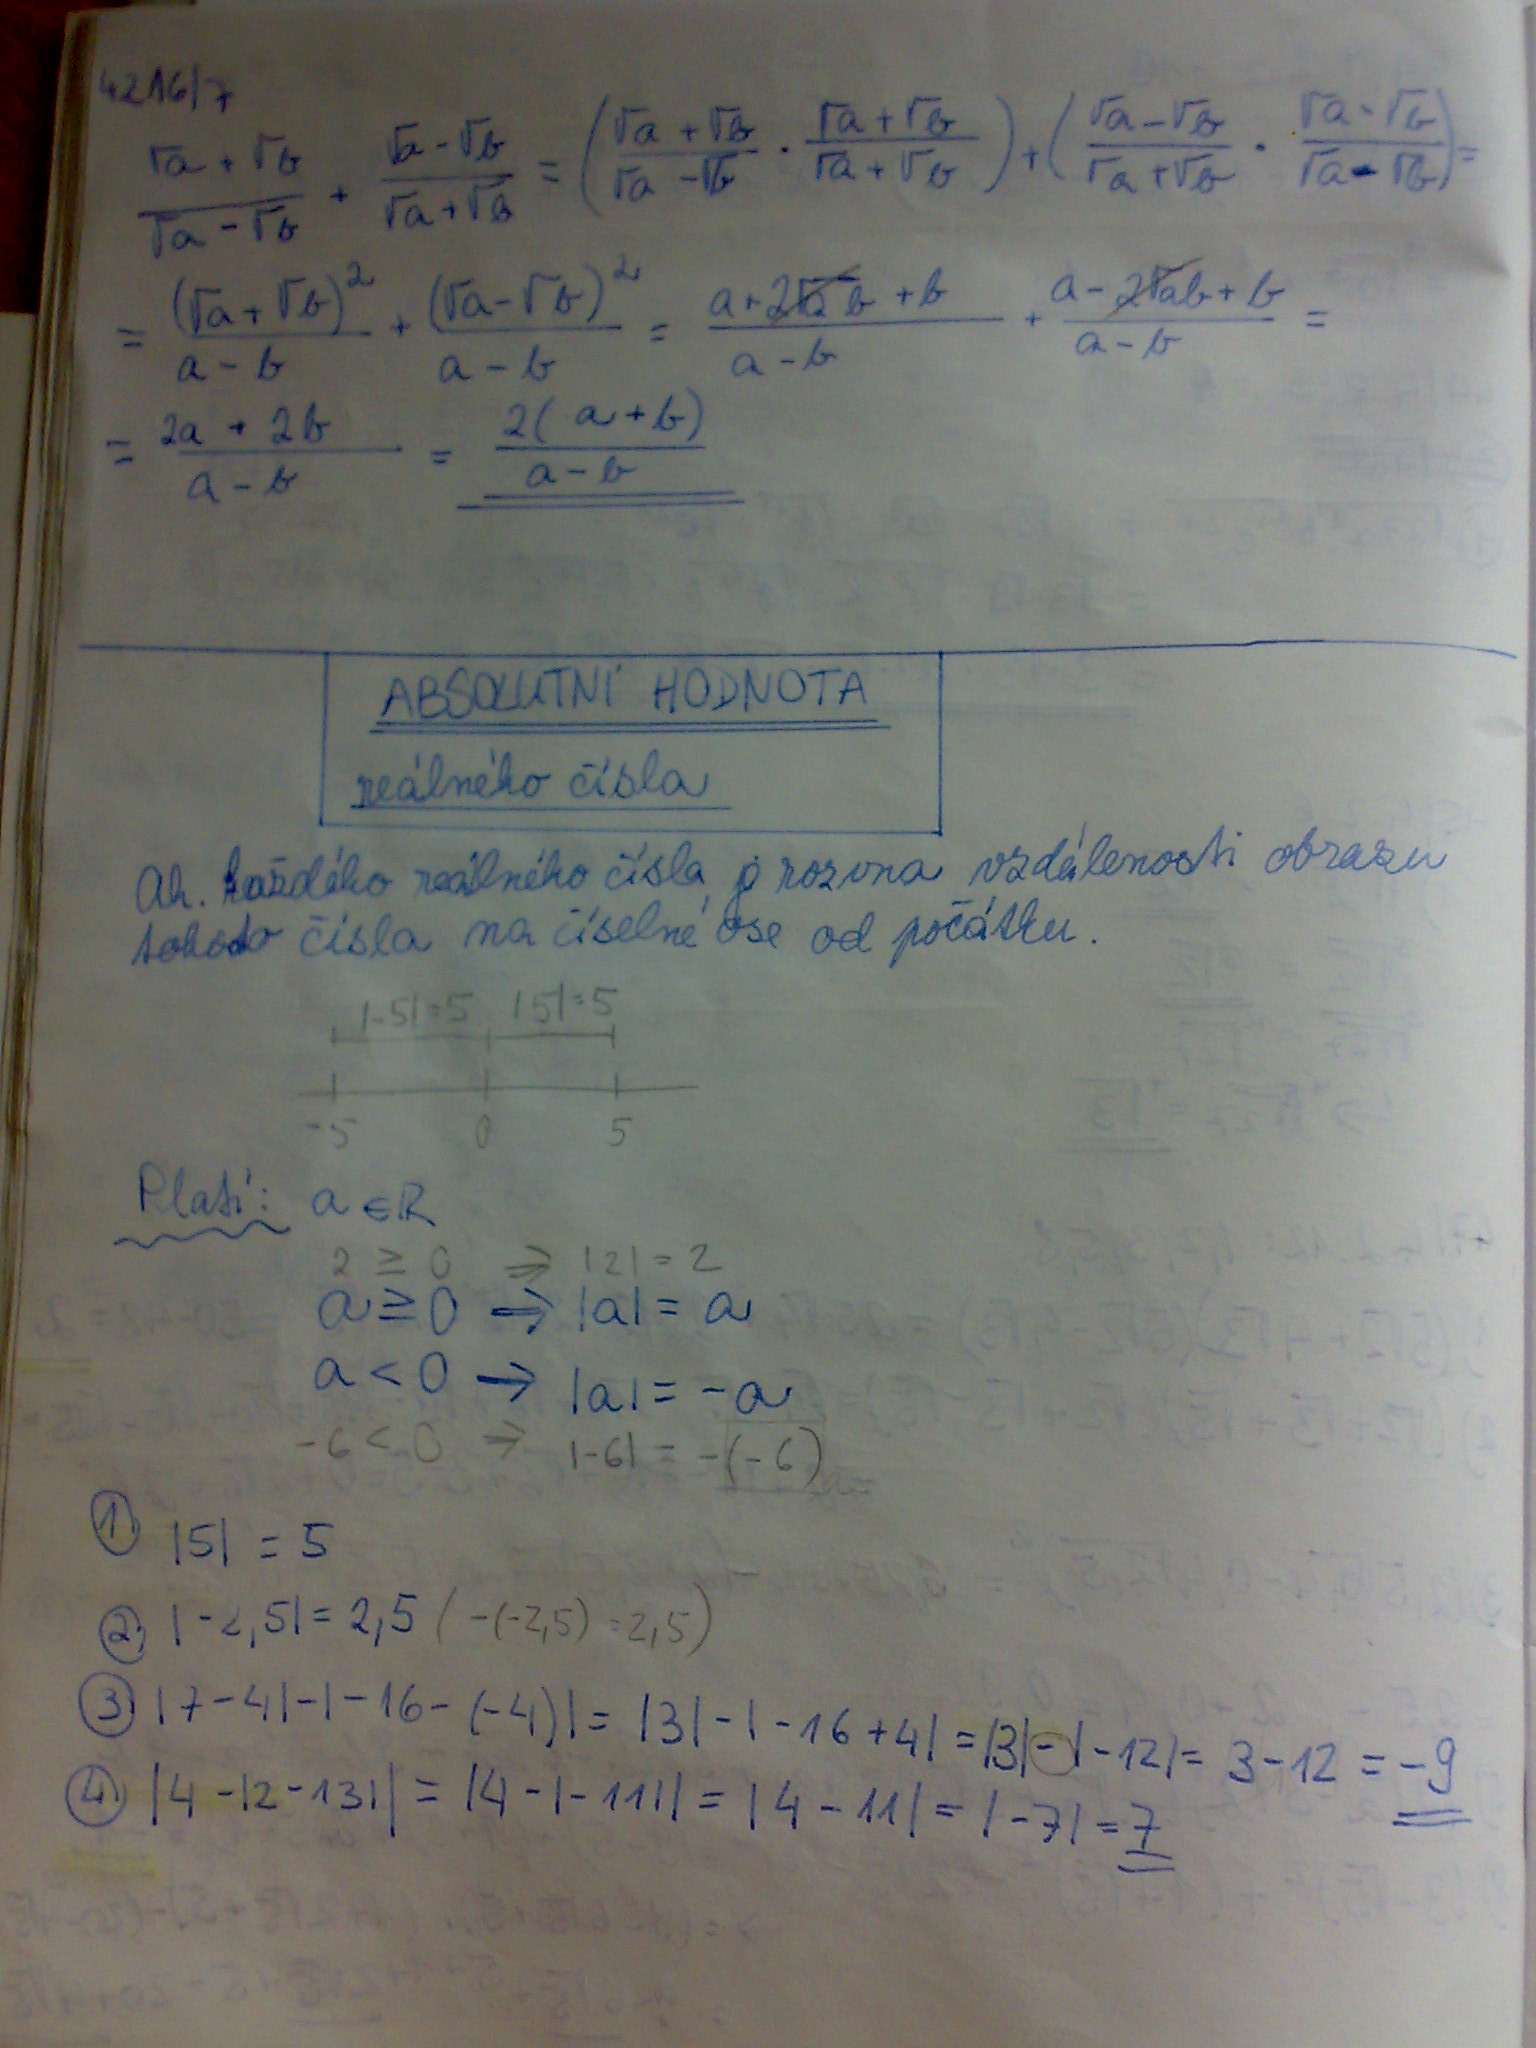 4216/7
(√a + √b)/(√a − √b) + (√a − √b)/(√a + √b) = ((√a + √b)/(√a − √b) · (√a + √b)/(√a + √b)) + ((√a − √b)/(√a + √b) · (√a − √b)/(√a − √b)) =
= (√a + √b)²/(a − b) + (√a − √b)²/(a − b) = (a + 2√ab + b)/(a − b) + (a − 2√ab + b)/(a − b) =
= (2a + 2b)/(a − b) = 2(a + b)/(a − b)
ABSOLUTNÍ HODNOTA
reálného čísla
Ah. každého reálného čísla je rovna vzdálenosti obrazu
tohoto čísla na číselné ose od počátku.
|-5| = 5 |5| = 5
-5 0 5
Platí: a ∈ R
2 ≥ 0 ⇒ |2| = 2
a ≥ 0 → |a| = a
a < 0 → |a| = -a
-6 < 0 → |-6| = -(-6)
1) |5| = 5
2) |-2,5| = 2,5 (-(-2,5) = 2,5)
3) |7 - 4| - |-16 - (-4)| = |3| - |-16 + 4| = |3| - |-12| = 3 - 12 = -9
4) |4 - |2 - 13|| = |4 - |-11|| = |4 - 11| = |-7| = 7